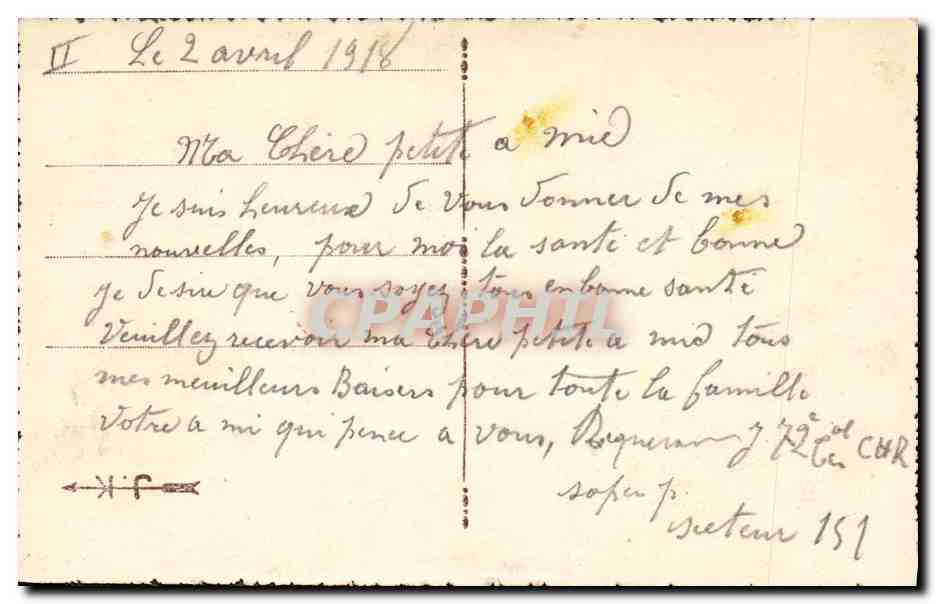 II Le 2 avril 1918
Ma Chère petite a mie
Je suis heureux de vous donner de mes
nouvelles, pour moi la santé et bonne
Je desire que vous soyez tous en bonne santé
CPAPHIL
Veuillez recevoir ma Chère petite a mie tous
mes meuilleurs Baisers pour toute la famille
Votre a mi qui pence a vous, 79e CHR
J.K
secteur 151